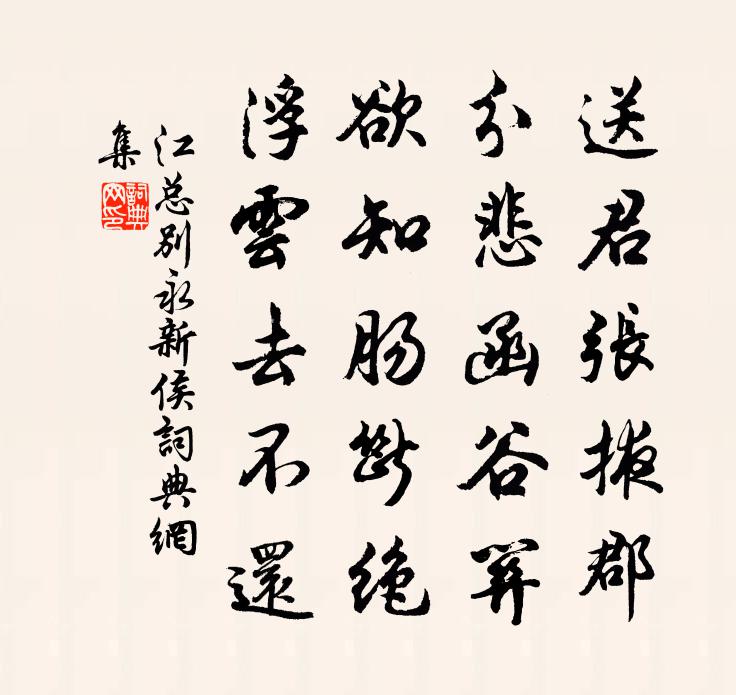 送君張掖郡
分悲函谷關
欲知腸斷絶
浮雲去不還
江总别永新侯詞典網
集
詞典网印